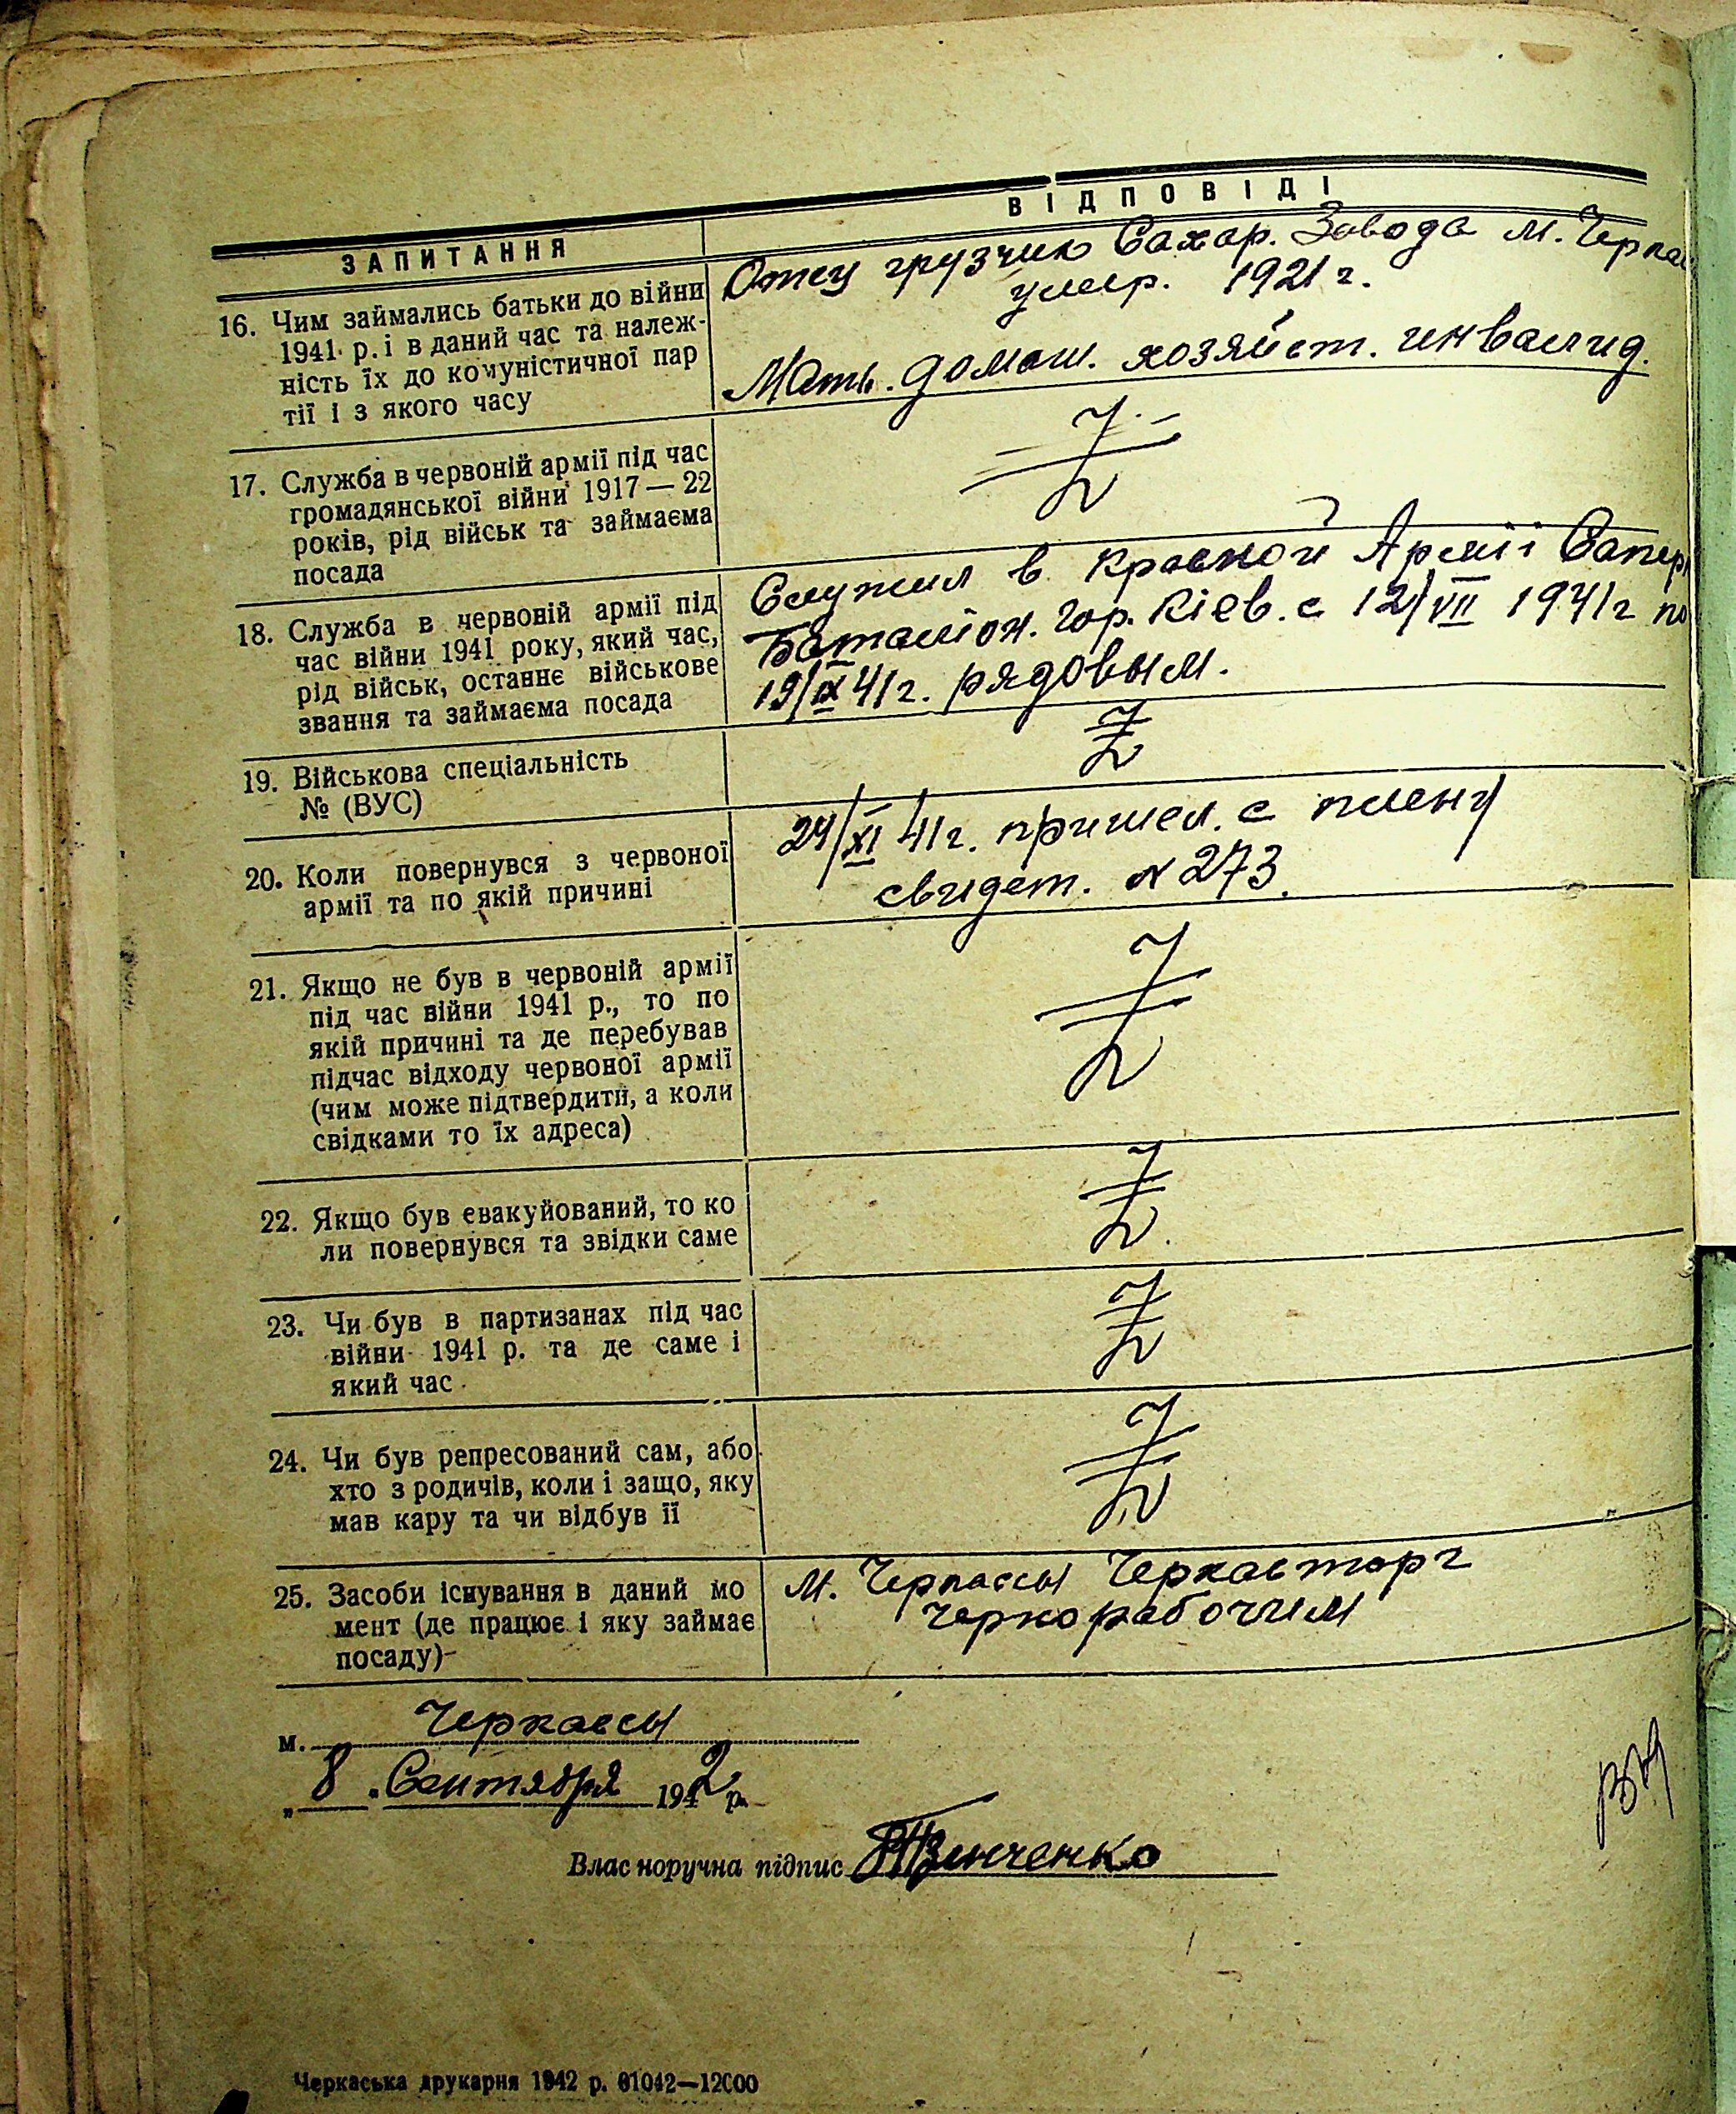 ЗАПИТАННЯ
ВІДПОВІДІ
16. Чим займались батьки до війни
1941 р. і в даний час та належ-
ність їх до комуністичної пар
тії і з якого часу
Отец грузчик Сахар. Завода м. Черкас
умер. 1921 г.
Мать. домаш. хозяйст. инвалид.
17. Служба в червоній армії під час
громадянської війни 1917—22
років, рід військ та займаєма
посада
18. Служба в червоній армії під
час війни 1941 року, який час,
рід військ, останнє військове
звання та займаєма посада
Служил в Красной Армії Сапер
Баталіон. гор. Кіев. с 12/VII 1941 г по
19/IX 41 г. рядовым.
19. Військова спеціальність
№ (ВУС)
20. Коли повернувся з червоної
армії та по якій причині
24/XI 41 г. пришел. с плену
свидет. № 273.
21. Якщо не був в червоній армії
під час війни 1941 р., то по
якій причині та де перебував
підчас відходу червоної армії
(чим може підтвердити, а коли
свідками то їх адреса)
22. Якщо був евакуйований, то ко
ли повернувся та звідки саме
23. Чи був в партизанах під час
війни 1941 р. та де саме і
який час
24. Чи був репресований сам, або
хто з родичів, коли і защо, яку
мав кару та чи відбув її
25. Засоби існування в даний мо
мент (де працює і яку займає
посаду)
м. Черкассы Черкасторг
чернорабочим
м. Черкассы
„8 „ Сентября 1942 р.
Власноручна підпис Зинченко
Черкаська друкарня 1942 р. 01042—12000